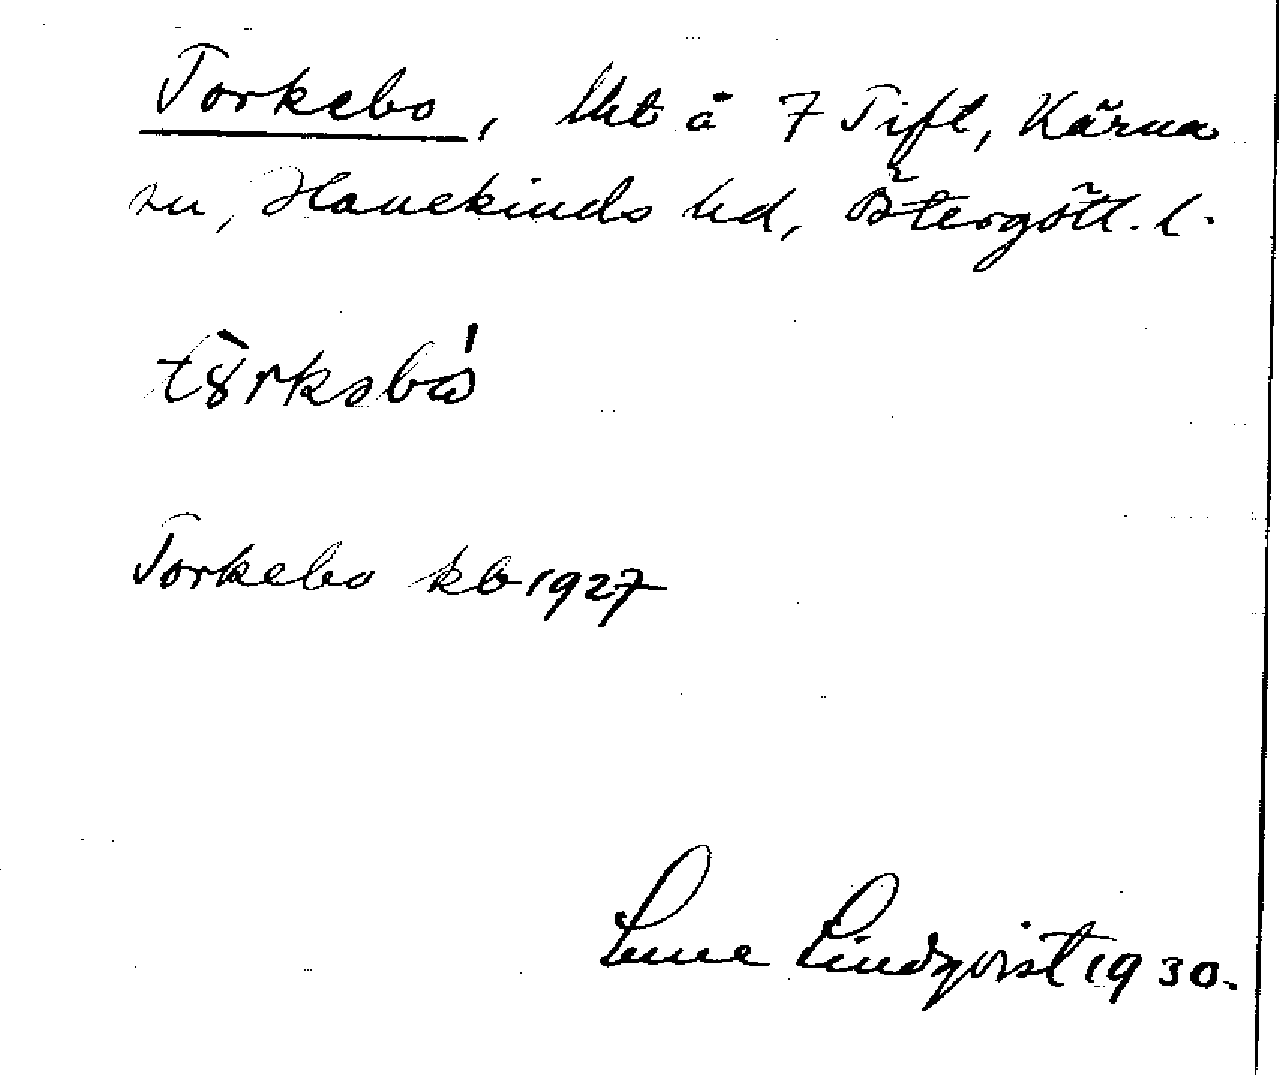 Torkebo, lht å 7 Tift, Kärna
sn, Hanekinds hd, Östergötl. l.
Torkebo kb 1927
Sune Lindqvist 1930.